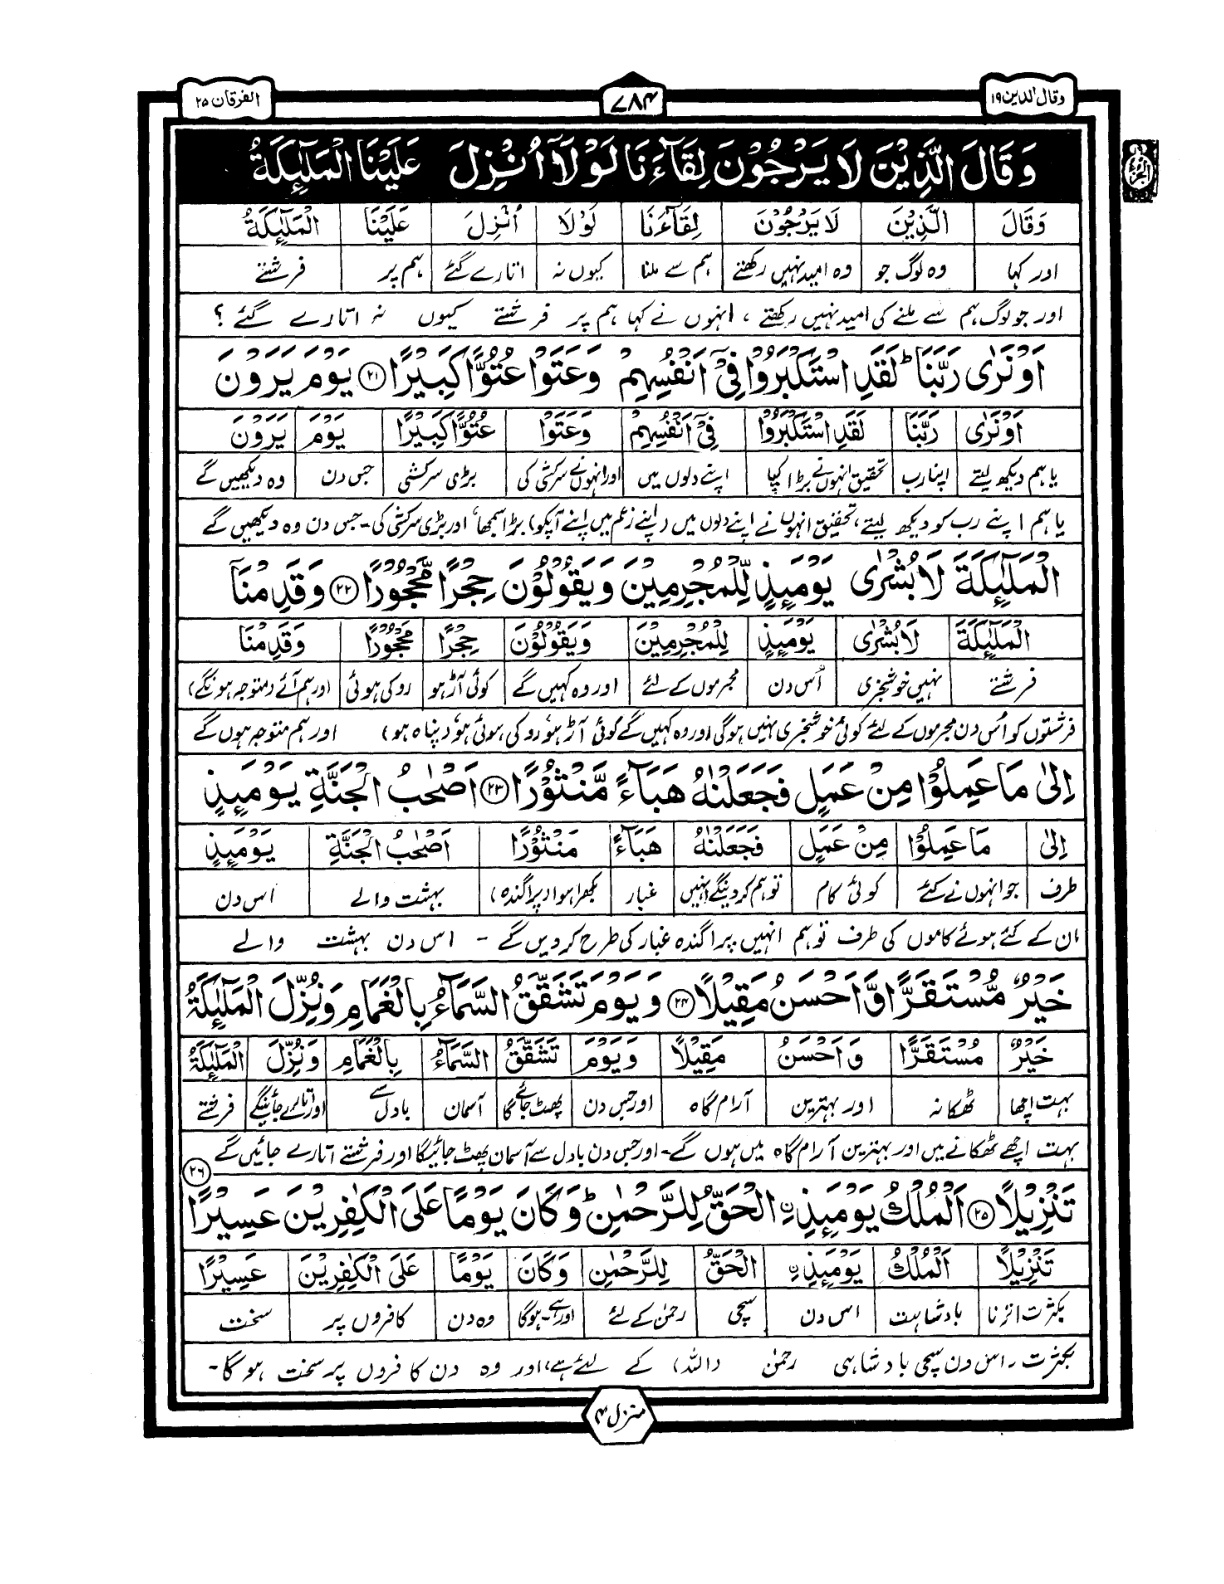 وقال الذین ۱۹
۷۸۴
الفرقان ۲۵
وَقَالَ الَّذِيْنَ لَا يَرْجُوْنَ لِقَآءَنَا لَوْلَآ اُنْزِلَ عَلَيْنَا الْمَلٰٓئِكَةُ
وَقَالَ الَّذِيْنَ لَا يَرْجُوْنَ لِقَآءَنَا لَوْلَا اُنْزِلَ عَلَيْنَا الْمَلٰٓئِكَةُ
اور کہا وہ لوگ جو وہ امید نہیں رکھتے ہم سے ملنا کیوں نہ اتارے گئے ہم پر فرشتے
اور جو لوگ ہم سے ملنے کی امید نہیں رکھتے ، انہوں نے کہا ہم پر فرشتے کیوں نہ اتارے گئے ؟
اَوْ نَرٰى رَبَّنَا ؕ لَقَدِ اسْتَكْبَرُوْا فِيْٓ اَنْفُسِهِمْ وَعَتَوْا عُتُوًّا كَبِيْرًا ۝۲۱ يَوْمَ يَرَوْنَ
اَوْ نَرٰى رَبَّنَا لَقَدِ اسْتَكْبَرُوْا فِيْٓ اَنْفُسِهِمْ وَعَتَوْا عُتُوًّا كَبِيْرًا يَوْمَ يَرَوْنَ
یا ہم دیکھ لیتے اپنا رب تحقیق انہوں نے بڑا کیا اپنے دلوں میں اور انہوں نے سرکشی کی بڑی سرکشی جس دن وہ دیکھیں گے
یا ہم اپنے رب کو دیکھ لیتے، تحقیق انہوں نے اپنے دلوں میں (اپنے زعم میں اپنے آپکو) بڑا سمجھا اور بڑی سرکشی کی۔ جس دن وہ دیکھیں گے
الْمَلٰٓئِكَةَ لَا بُشْرٰى يَوْمَئِذٍ لِّلْمُجْرِمِيْنَ وَيَقُوْلُوْنَ حِجْرًا مَّحْجُوْرًا ۝۲۲ وَقَدِمْنَآ
الْمَلٰٓئِكَةَ لَا بُشْرٰى يَوْمَئِذٍ لِلْمُجْرِمِيْنَ وَيَقُوْلُوْنَ حِجْرًا مَحْجُوْرًا وَقَدِمْنَا
فرشتے نہیں خوشخبری اُس دن مجرموں کے لئے اور وہ کہیں گے کوئی آڑ ہو روکی ہوئی اور ہم آئے (متوجہ ہونگے)
فرشتوں کو اُس دن مجرموں کے لئے کوئی خوشخبری نہیں ہوگی اور وہ کہیں گے کوئی آڑ ہو روکی ہوئی ہو (پناہ ہو) اور ہم متوجہ ہوں گے
اِلٰى مَا عَمِلُوْا مِنْ عَمَلٍ فَجَعَلْنٰهُ هَبَآءً مَّنْثُوْرًا ۝۲۳ اَصْحٰبُ الْجَنَّةِ يَوْمَئِذٍ
اِلٰى مَا عَمِلُوْا مِنْ عَمَلٍ فَجَعَلْنٰهُ هَبَآءً مَنْثُوْرًا اَصْحٰبُ الْجَنَّةِ يَوْمَئِذٍ
طرف جو انہوں نے کئے کوئی کام تو ہم کردینگے انہیں غبار بکھرا ہوا (پراگندہ) بہشت والے اُس دن
ان کے کئے ہوئے کاموں کی طرف تو ہم انہیں پراگندہ غبار کی طرح کر دیں گے ۔ اس دن بہشت والے
خَيْرٌ مُّسْتَقَرًّا وَّاَحْسَنُ مَقِيْلًا ۝۲۴ وَيَوْمَ تَشَقَّقُ السَّمَآءُ بِالْغَمَامِ وَنُزِّلَ الْمَلٰٓئِكَةُ
خَيْرٌ مُسْتَقَرًّا وَاَحْسَنُ مَقِيْلًا وَيَوْمَ تَشَقَّقُ السَّمَآءُ بِالْغَمَامِ وَنُزِّلَ الْمَلٰٓئِكَةُ
بہت اچھا ٹھکانہ اور بہترین آرام گاہ اور جس دن پھٹ جائے گا آسمان بادل سے اور اتارے جائینگے فرشتے
بہت اچھے ٹھکانے میں اور بہترین آرام گاہ میں ہوں گے۔ اور جس دن بادل سے آسمان پھٹ جائیگا اور فرشتے اتارے جائیں گے
تَنْزِيْلًا ۝۲۵ اَلْمُلْكُ يَوْمَئِذِ ۨالْحَقُّ لِلرَّحْمٰنِ ؕ وَكَانَ يَوْمًا عَلَى الْكٰفِرِيْنَ عَسِيْرًا ۝۲۶
تَنْزِيْلًا اَلْمُلْكُ يَوْمَئِذِ ۨ الْحَقُّ لِلرَّحْمٰنِ وَكَانَ يَوْمًا عَلَى الْكٰفِرِيْنَ عَسِيْرًا
بکثرت اترنا بادشاہت اس دن سچی رحمٰن کے لئے اور ہے۔ ہوگا وہ دن کافروں پر سخت
بکثرت ، اس دن سچی بادشاہی رحمٰن (اللہ) کے لئے ہے، اور وہ دن کافروں پر سخت ہو گا۔
منزل ۴